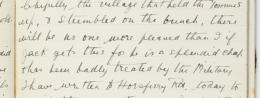 the village that held the
up, & stumbled on the bunch, there
will be no one more pleased than I if
Jack gets this for he is a splendid chap
thas been badly treated by the Military
I have written to Horseferry Rd, today to